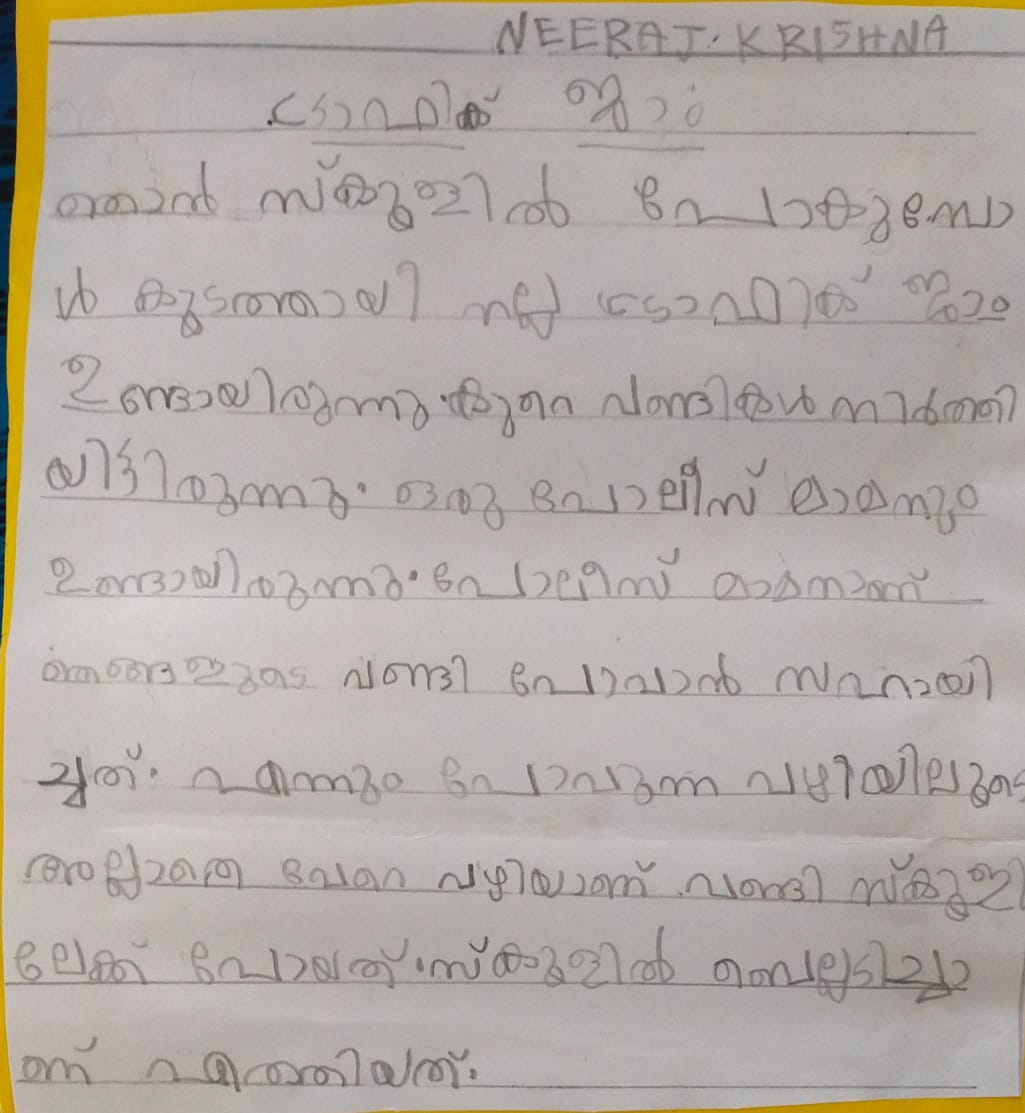 NEERAJ. KRISHNA
ട്രാഫിക് ജാം
ഞാൻ സ്കൂളിൽ പോകുമ്പോ
ൾ കൂടതലായി നല്ല ട്രാഫിക് ജാം
ഉണ്ടായിരുന്നു. കുറെ വണ്ടികൾ നിർത്തി
യിട്ടിരുന്നു. ഒരു പോലീസ് മാമനും
ഉണ്ടായിരുന്നു. പോലീസ് മാമനാണ്
ഞങ്ങളുടെ വണ്ടി പോവാൻ സഹായി
ച്ചത്. എന്നും പോവുന്ന വഴിയിലൂടെ
അല്ലാതെ വേറെ വഴിയാണ് വണ്ടി സ്കൂളി
ലേക്ക് പോയത്. സ്കൂളിൽ വൈകിച്ചാ
ണ് എത്തിയത്.